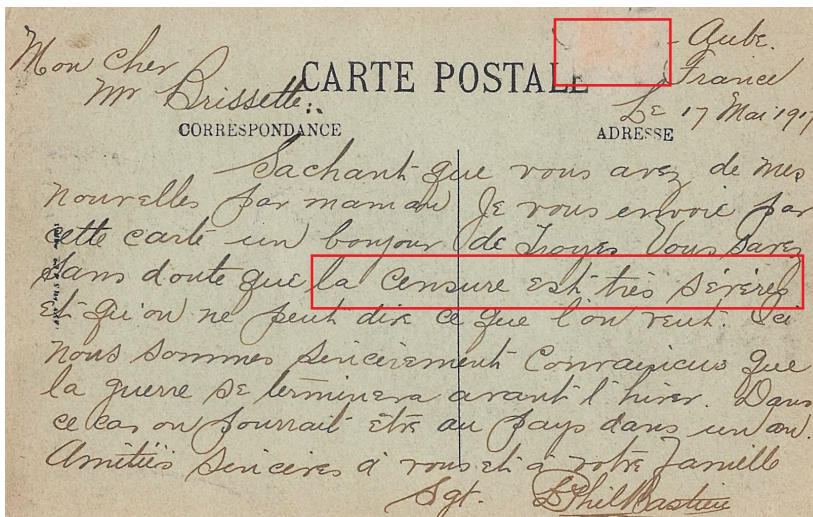 - Aube.
Mon cher France
Mr Brissette. CARTE POSTALE Le 17 Mai 1917
CORRESPONDANCE ADRESSE
Sachant que vous avez de mes
nouvelles par maman Je vous envoie par
cette carte un bonjour de Troyes Vous savez
sans doute que la censure est très sévères
Et qu'on ne peut dire ce que l'on veut. Ici
nous sommes sincèrement convaincus que
la guerre se terminera avant l'hiver. Dans
ce cas on pourrait être au pays dans un an.
Amitiés sincères à vous et à votre famille
Sgt. Phil Bastien